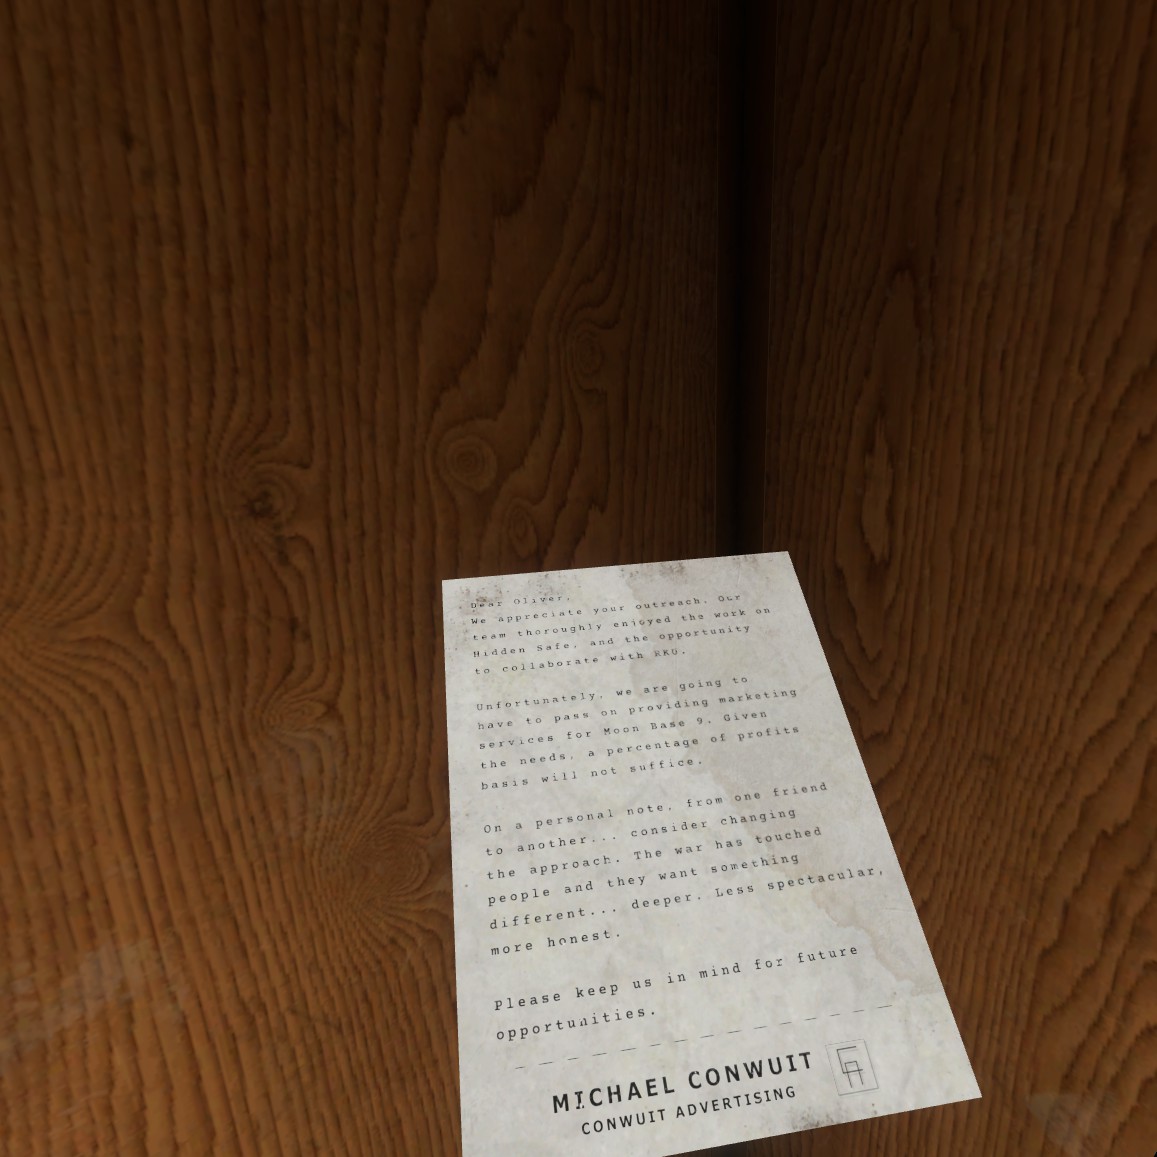 Dear Oliver,
We appreciate your outreach. Our
team thoroughly enjoyed the work on
Hidden Safe, and the opportunity
to collaborate with RKO.
Unfortunately, we are going to
have to pass on providing marketing
services for Moon Base 9. Given
the needs, a percentage of profits
basis will not suffice.
On a personal note, from one friend
to another... consider changing
the approach. The war has touched
people and they want something
different... deeper. Less spectacular,
more honest.
Please keep us in mind for future
opportunities.
MICHAEL CONWUIT
CONWUIT ADVERTISING